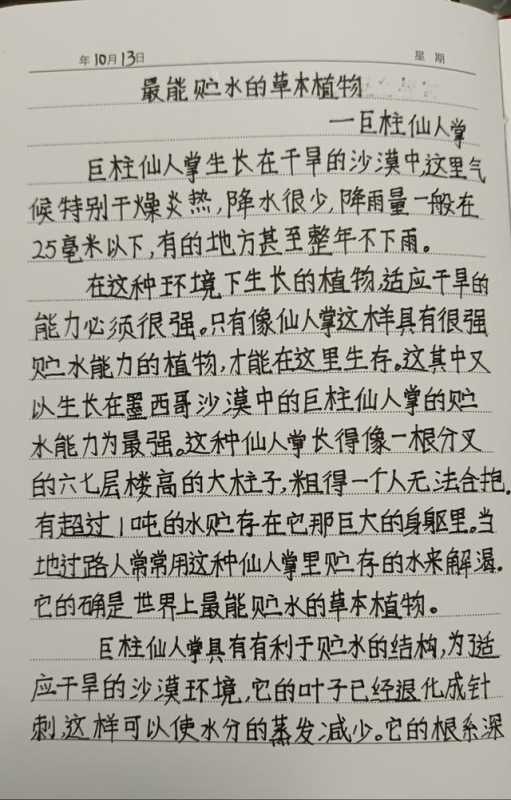 年10月13日 星 期
最能贮水的草本植物
—巨柱仙人掌
巨柱仙人掌生长在干旱的沙漠中,这里气
候特别干燥炎热,降水很少,降雨量一般在
25毫米以下,有的地方甚至整年不下雨。
在这种环境下生长的植物,适应干旱的
能力必须很强。只有像仙人掌这样具有很强
贮水能力的植物,才能在这里生存。这其中又
以生长在墨西哥沙漠中的巨柱仙人掌的贮
水能力为最强。这种仙人掌长得像一根分叉
的六七层楼高的大柱子,粗得一个人无法合抱。
有超过1吨的水贮存在它那巨大的身躯里。当
地过路人常常用这种仙人掌里贮存的水来解渴。
它的确是世界上最能贮水的草本植物。
巨柱仙人掌具有有利于贮水的结构,为了适
应干旱的沙漠环境,它的叶子已经退化成针
刺,这样可以使水分的蒸发减少。它的根系深